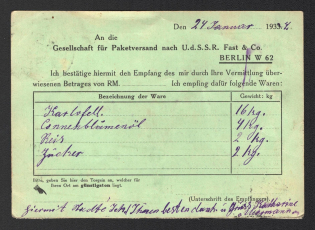 Den 24 Januar 193
An die
Gesellschaft für Paketversand nach U.d.S.S.R. Fast & Co.
BERLIN W 62
Ich bestätige hiermit den Empfang des mir durch Ihre Vermittlung über-
wiesenen Betrages von RM. Ich empfing dafür folgende Waren:
Bezeichnung der Ware Gewicht: kg
Kartofell. 16 kg.
Sonnenblumenöl 4 kg
Reis 2 kg
Zucker 2 kg
Bitte, geben Sie hier den Torgsin an, welcher für
Ihren Ort am günstigsten liegt.
(Unterschrift des Empfängers)
Hiermit Ihnen besten dank u. Gruß Katharina